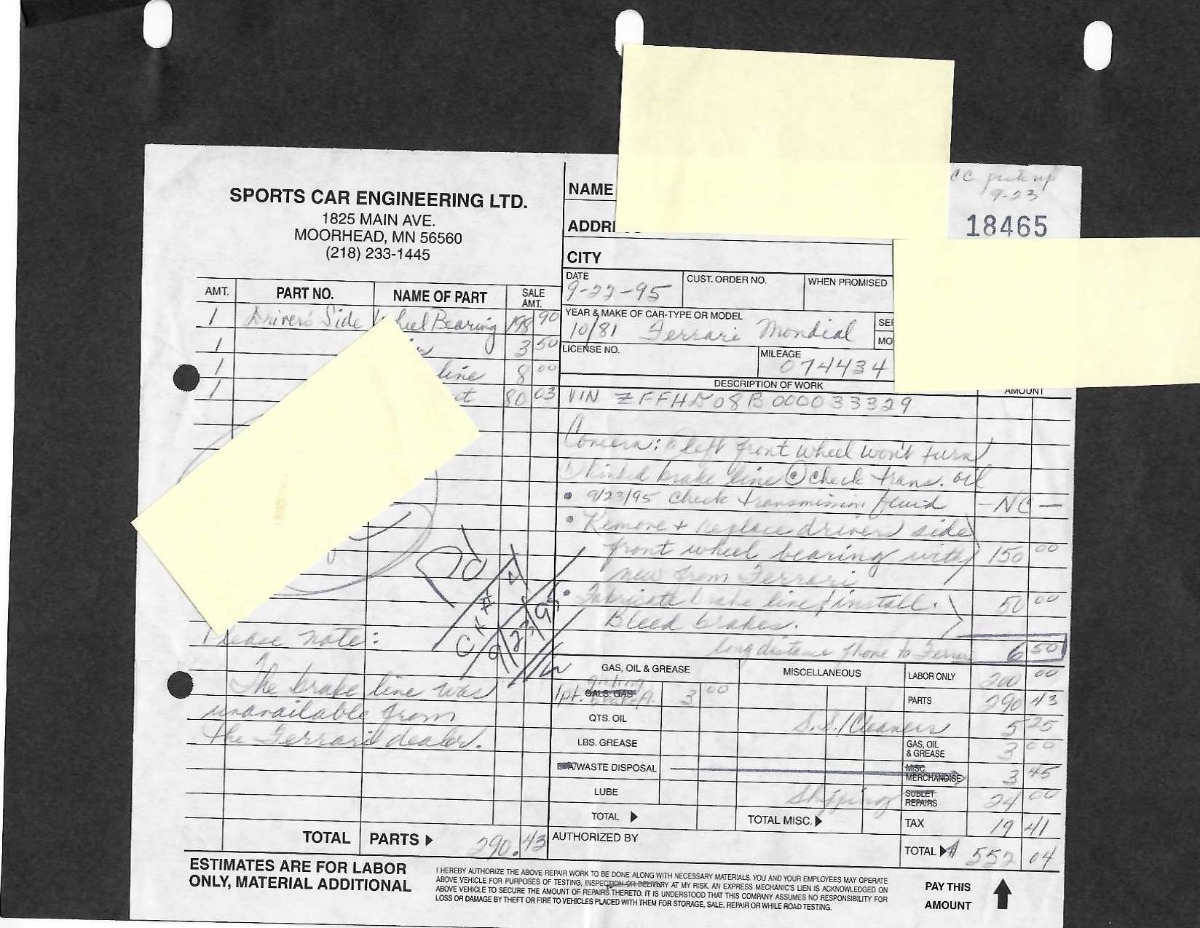 CC pick up
9-23
18465
SPORTS CAR ENGINEERING LTD.
1825 MAIN AVE.
MOORHEAD, MN 56560
(218) 233-1445
NAME
ADDR
CITY
DATE
9-22-95
CUST. ORDER NO.
WHEN PROMISED
YEAR & MAKE OF CAR-TYPE OR MODEL
10/81 Ferrari Mondial
SE
MO
LICENSE NO.
MILEAGE
074434
DESCRIPTION OF WORK
AMOUNT
AMT. PART NO. NAME OF PART SALE AMT.
1 Driver's Side Wheel Bearing 198 90
1 3 50
1 line 8 00
1 80 03
VIN ZFFHD08B000033329
Concern: a left front wheel won't turn
b) Kinked brake line c) Check trans. oil
• 9/23/95 Check transmission fluid -NC-
• Remove + replace driver side
front wheel bearing with 150 00
new from Ferrari
• Fabricate brake line & install. 50 00
Bleed brakes.
long distance Phone to Ferrari 6 50
Pd
CK #
9/23/95
Please note:
The brake line was
unavailable from
the Ferrari dealer.
GAS, OIL & GREASE MISCELLANEOUS LABOR ONLY 200 00
1pt. GALS. GAS 3 00 PARTS 290 43
QTS. OIL S.S./Cleaners 5 25
LBS. GREASE GAS, OIL & GREASE 3 00
WASTE DISPOSAL MISC. MERCHANDISE 3 45
LUBE Shipping SUBLET REPAIRS 24 00
TOTAL TOTAL MISC. TAX 19 41
TOTAL PARTS 290.43 AUTHORIZED BY TOTAL 552 04
ESTIMATES ARE FOR LABOR
ONLY, MATERIAL ADDITIONAL
I HEREBY AUTHORIZE THE ABOVE REPAIR WORK TO BE DONE ALONG WITH NECESSARY MATERIALS. YOU AND YOUR EMPLOYEES MAY OPERATE
ABOVE VEHICLE FOR PURPOSES OF TESTING, INSPECTION OR DELIVERY AT MY RISK. AN EXPRESS MECHANIC'S LIEN IS ACKNOWLEDGED ON
ABOVE VEHICLE TO SECURE THE AMOUNT OF REPAIRS THERETO. IT IS UNDERSTOOD THAT THIS COMPANY ASSUMES NO RESPONSIBILITY FOR
LOSS OR DAMAGE BY THEFT OR FIRE TO VEHICLES PLACED WITH THEM FOR STORAGE, SALE, REPAIR OR WHILE ROAD TESTING.
PAY THIS
AMOUNT